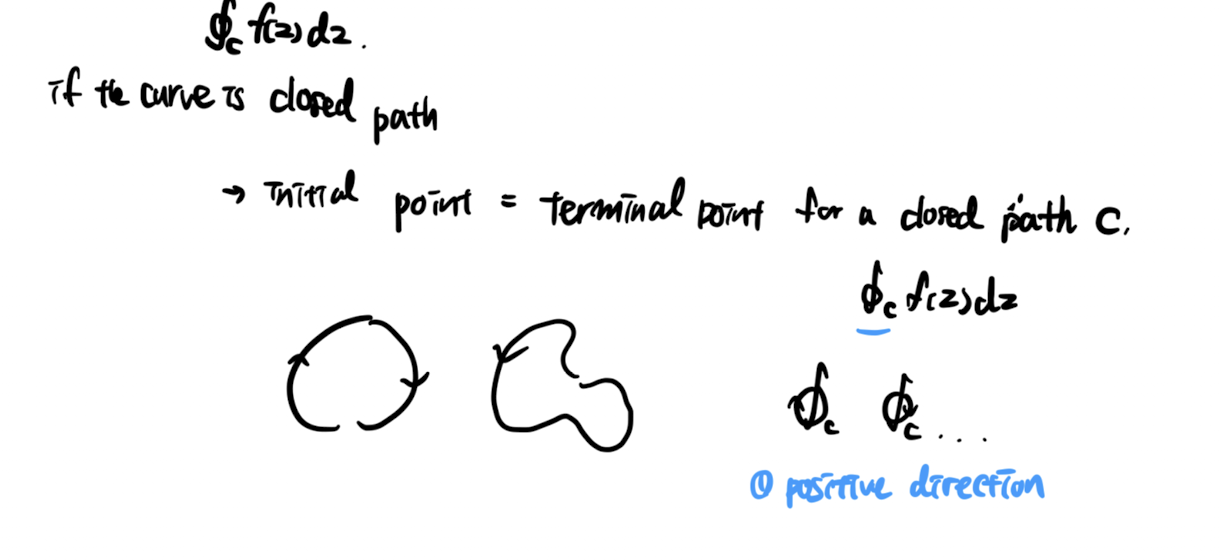 ∮_c f(z) dz.
if the curve is closed path
→ initial point = terminal point for a closed path C.
∮_c f(z) dz
∮_c ∮_c ...
① positive direction